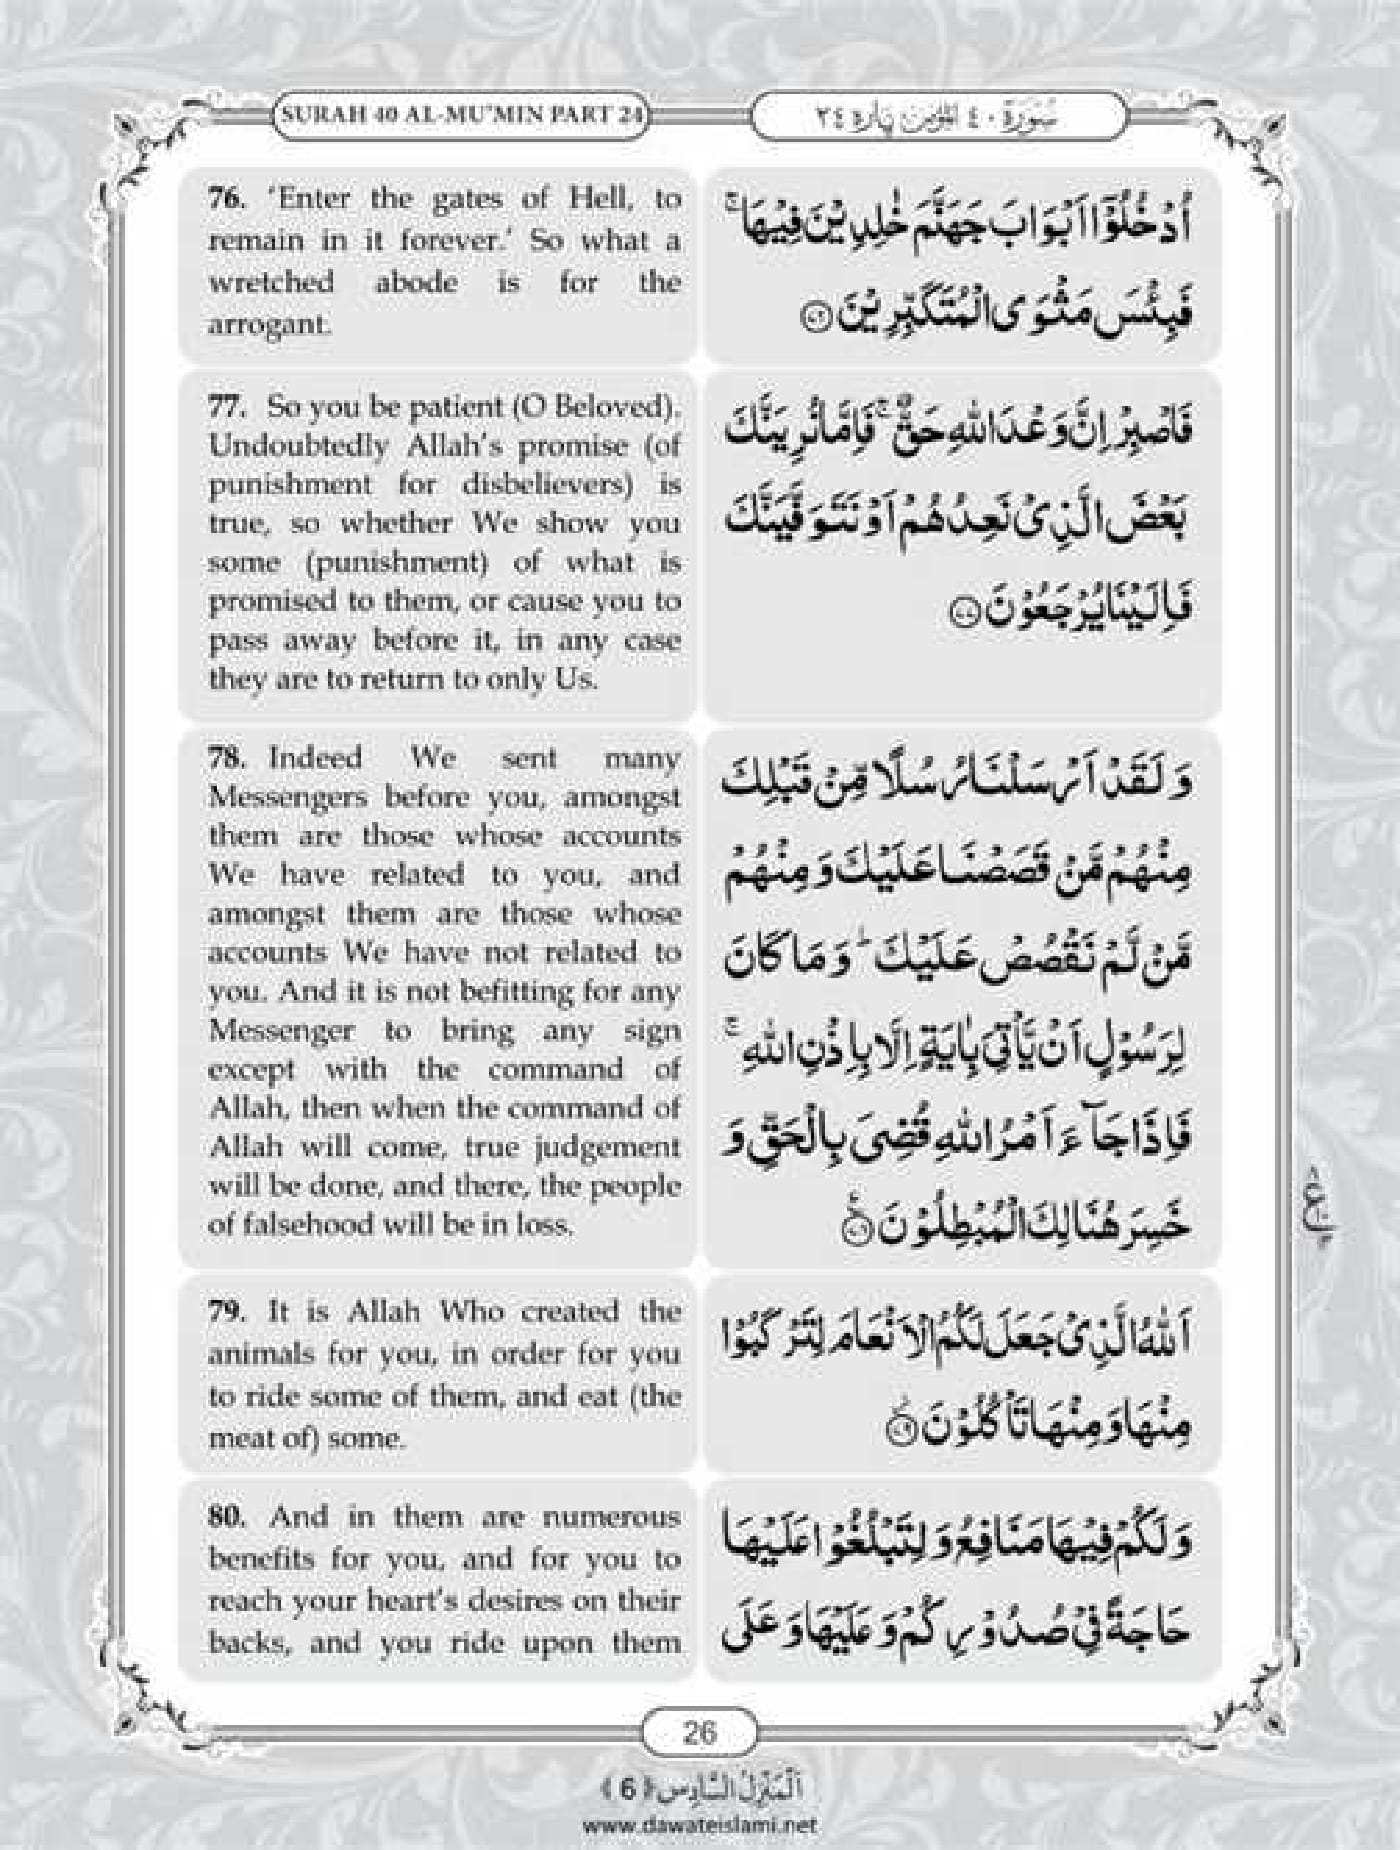 SURAH 40 AL-MU'MIN PART 24
سُوۡرَۃ ٤٠ المؤمن پارہ ٢٤
76. ‘Enter the gates of Hell, to
remain in it forever.’ So what a
wretched abode is for the
arrogant.
اُدۡخُلُوۡۤا اَبۡوَابَ جَهَنَّمَ خٰلِدِيۡنَ فِيۡهَا ۚ
فَبِئۡسَ مَثۡوَى الۡمُتَكَبِّرِيۡنَ ﴿۷۶﴾
77. So you be patient (O Beloved).
Undoubtedly Allah’s promise (of
punishment for disbelievers) is
true, so whether We show you
some (punishment) of what is
promised to them, or cause you to
pass away before it, in any case
they are to return to only Us.
فَاصۡبِرۡ اِنَّ وَعۡدَ اللّٰهِ حَقٌّ ۚ فَاِمَّا نُرِيَنَّكَ
بَعۡضَ الَّذِىۡ نَعِدُهُمۡ اَوۡ نَتَوَفَّيَنَّكَ
فَاِلَيۡنَا يُرۡجَعُوۡنَ ﴿۷۷﴾
78. Indeed We sent many
Messengers before you, amongst
them are those whose accounts
We have related to you, and
amongst them are those whose
accounts We have not related to
you. And it is not befitting for any
Messenger to bring any sign
except with the command of
Allah, then when the command of
Allah will come, true judgement
will be done, and there, the people
of falsehood will be in loss.
وَلَقَدۡ اَرۡسَلۡنَا رُسُلًا مِّنۡ قَبۡلِكَ
مِنۡهُمۡ مَّنۡ قَصَصۡنَا عَلَيۡكَ وَمِنۡهُمۡ
مَّنۡ لَّمۡ نَقۡصُصۡ عَلَيۡكَ ؕ وَمَا كَانَ
لِرَسُوۡلٍ اَنۡ يَّاۡتِىَ بِاٰيَةٍ اِلَّا بِاِذۡنِ اللّٰهِ ۚ
فَاِذَا جَآءَ اَمۡرُ اللّٰهِ قُضِىَ بِالۡحَقِّ وَ
خَسِرَ هُنَالِكَ الۡمُبۡطِلُوۡنَ ﴿۷۸﴾
79. It is Allah Who created the
animals for you, in order for you
to ride some of them, and eat (the
meat of) some.
اَللّٰهُ الَّذِىۡ جَعَلَ لَكُمُ الۡاَنۡعَامَ لِتَرۡكَبُوۡا
مِنۡهَا وَمِنۡهَا تَاۡكُلُوۡنَ ﴿۷۹﴾
80. And in them are numerous
benefits for you, and for you to
reach your heart’s desires on their
backs, and you ride upon them
وَلَكُمۡ فِيۡهَا مَنَافِعُ وَلِتَبۡلُغُوۡا عَلَيۡهَا
حَاجَةً فِىۡ صُدُوۡرِكُمۡ وَعَلَيۡهَا وَعَلَى
26
اَلۡمَنۡزِلُ السَّادِس ﴿6﴾
www.dawateislami.net